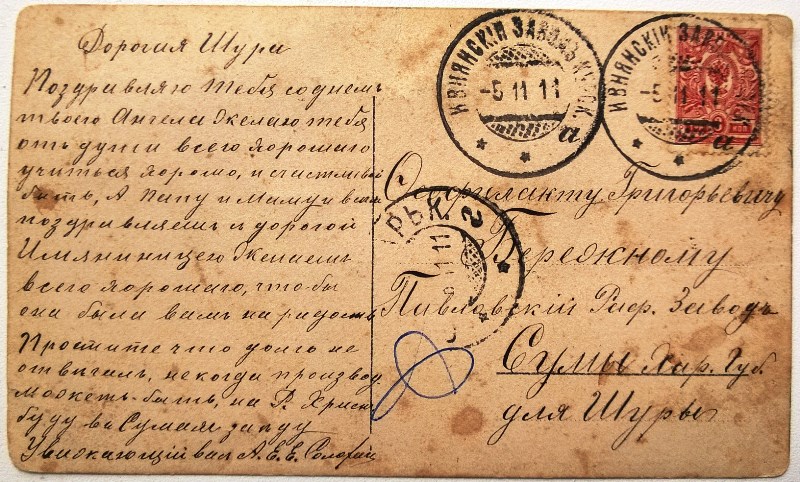 Дорогая Шура
Поздравляю тебя со днемъ
твоего Ангела Желаю тебя
отъ души всего хорошаго
учиться хорошо, и счастливой
быть, А Папу и Маму и
поздравляемъ с дорогой
Имянинницею Желаемъ
всего хорошаго, что-бы
она была вамъ на радость
Простите что долго не
отвичалъ, некогда производ.
можетъ-быть, на Р. Христ
буду въ Сумахъ заеду
Увижающий вас А. Е. Е.
ИВНЯНСКІЙ ЗАВОДЪ КУРСК.
-5 11 11
а
ИВНЯНСКІЙ ЗАВО
-5 11 11
а
2
11 11
Феофилакту Григорьевичу
Бережному
Павловскій Раф. Заводъ
Сумы Хар. Губ.
для Шуры